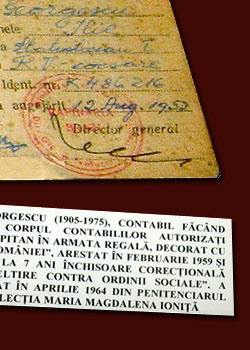 Georgescu
mele Ilie
a Statistician I
R.P.V. socoare
Ident. nr. K 486216
a angajării 12 Aug. 1957
Director general
RGESCU (1905-1975), CONTABIL FĂCÂND
CORPUL CONTABILILOR AUTORIZAȚI
PITAN ÎN ARMATA REGALĂ, DECORAT CU
OMÂNIEI”, ARESTAT ÎN FEBRUARIE 1959 ȘI
LA 7 ANI ÎNCHISOARE CORECȚIONALĂ
ELTIRE CONTRA ORDINII SOCIALE”. A
AT ÎN APRILIE 1964 DIN PENITENCIARUL
LECȚIA MARIA MAGDALENA IONIȚĂ